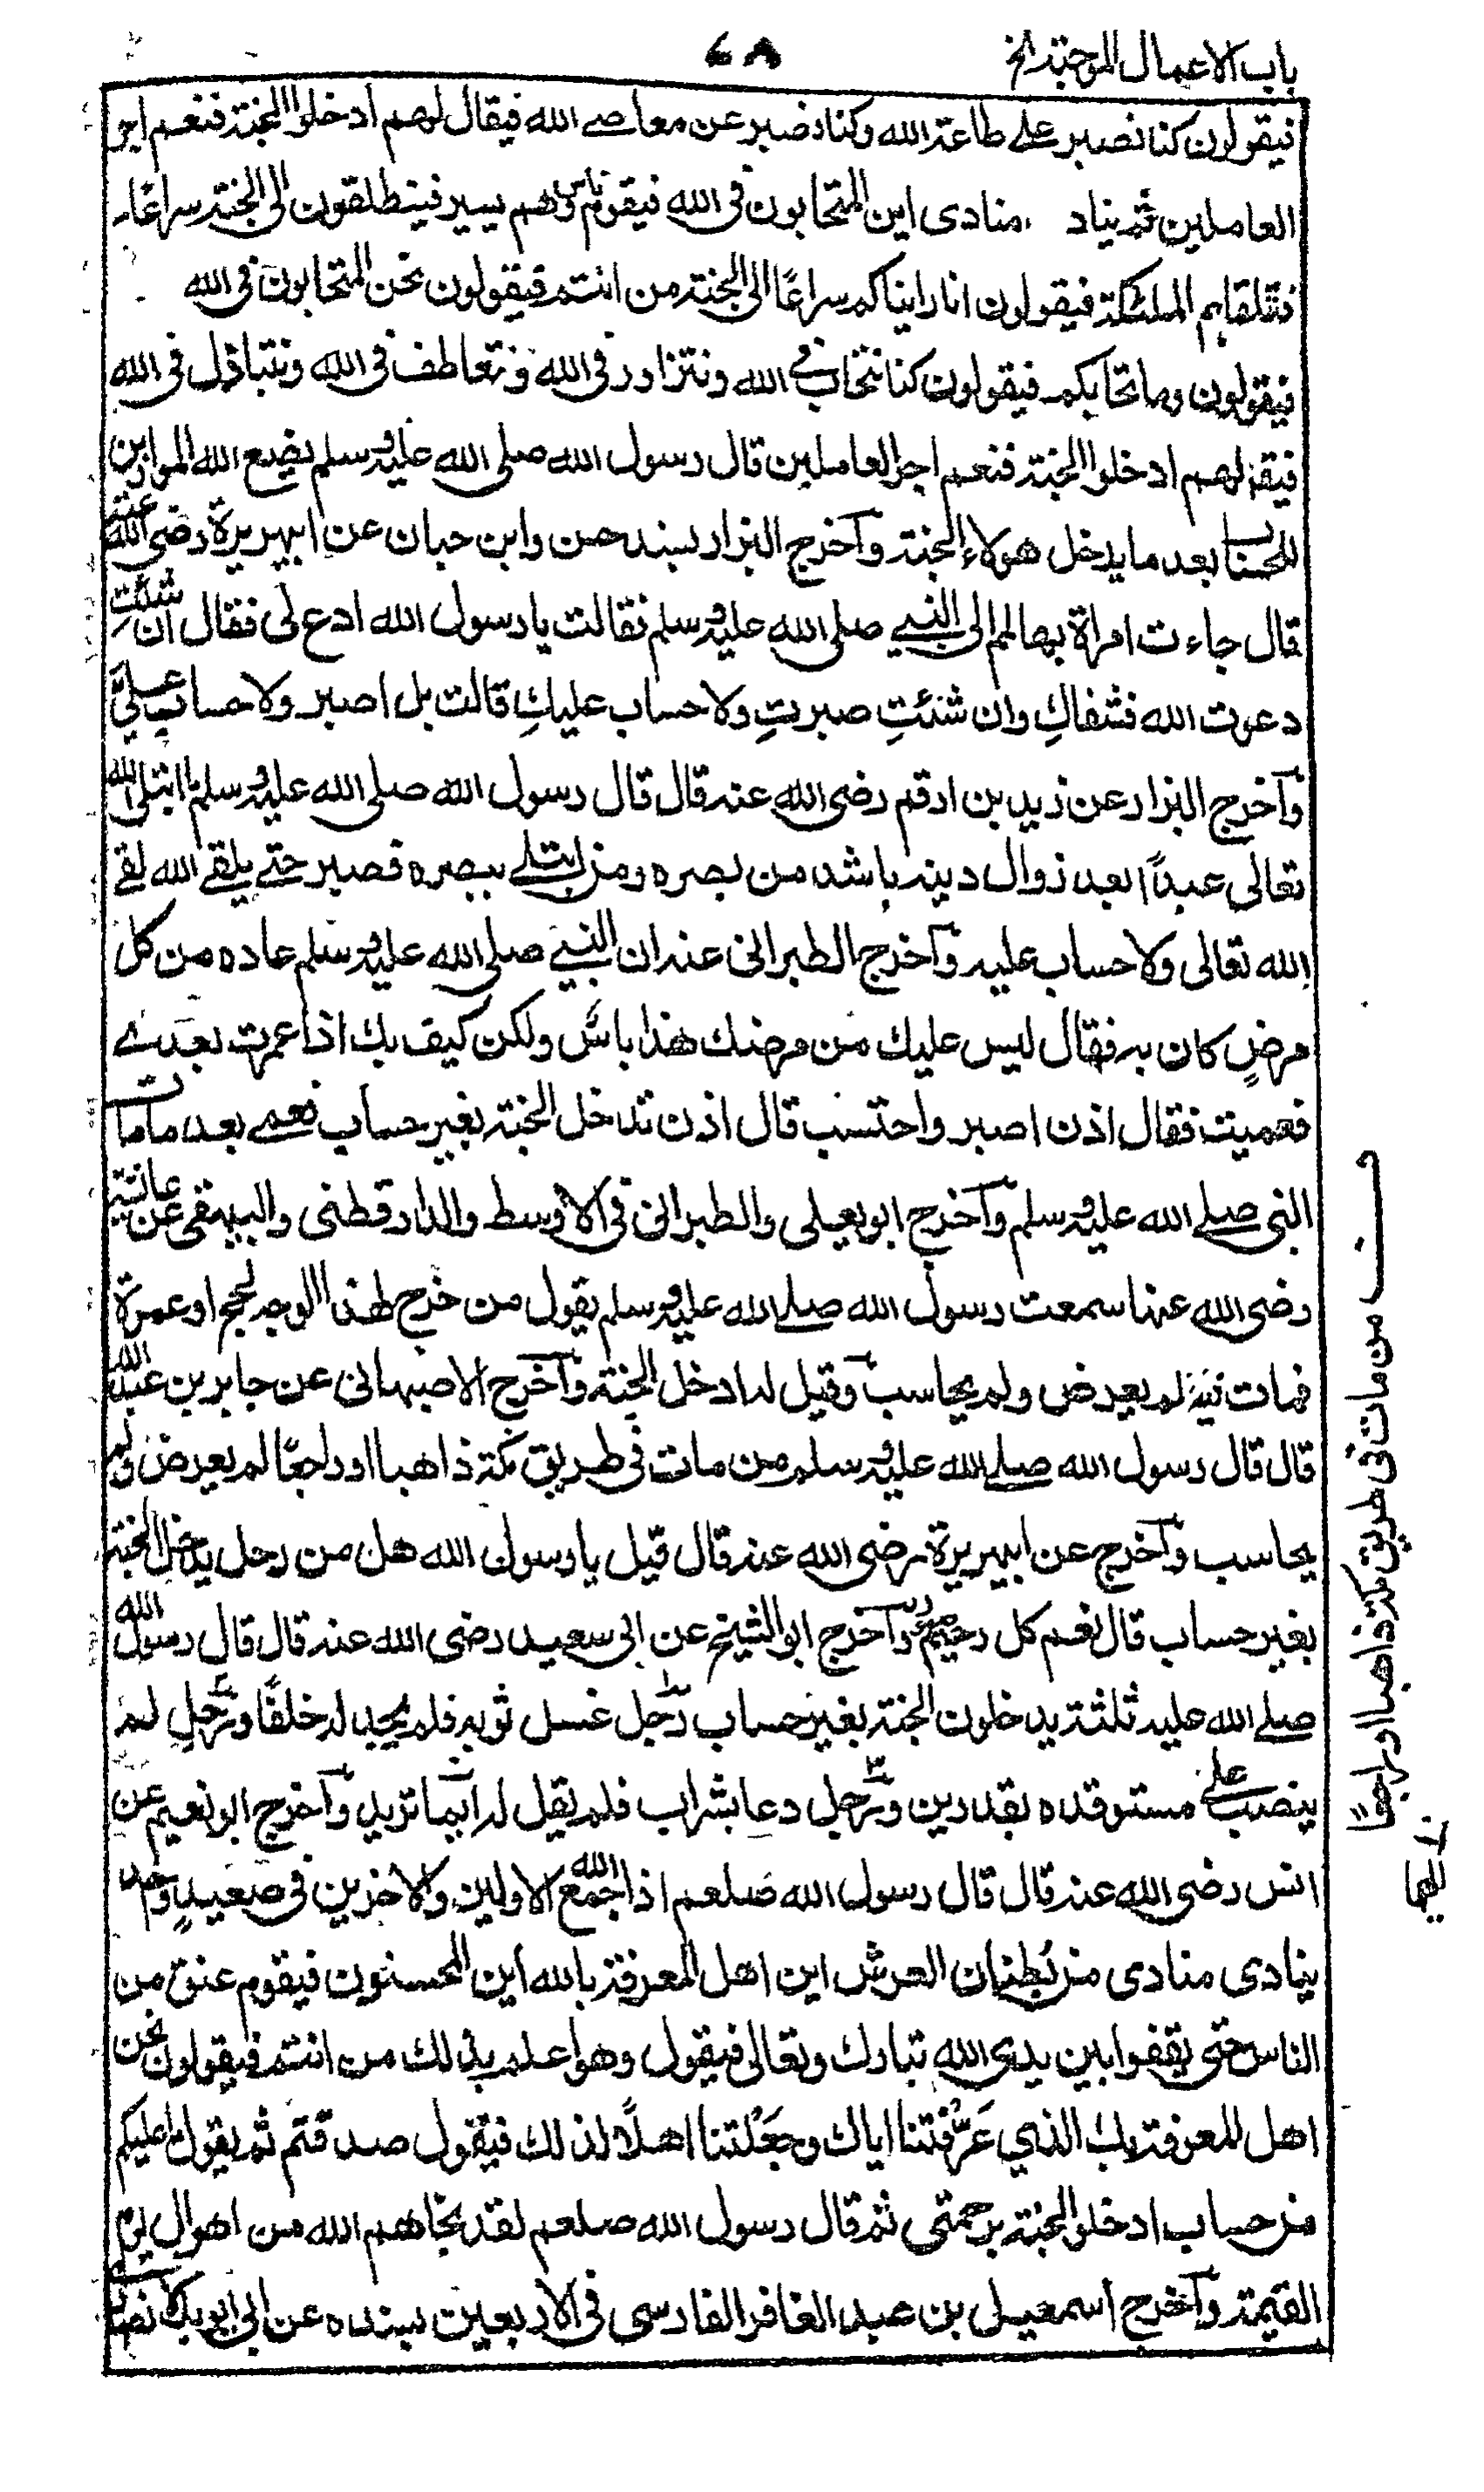 باب الاعمال الموجبة الخ
٦٨
فيقولون كنا نصبر على طاعة الله وكنا نصبر عن معاصي الله فيقال لهم ادخلوا الجنة فنعم اجر
العاملين ثم يناد منادى اين المتحابون فى الله فيقوم ناس وهم يسير فينطلقون الى الجنة سراعًا
فتلقاهم الملئكة فيقولون انا رايناكم سراعًا الى الجنة من انتم فيقولون نحن المتحابون فى الله
فيقولون وما تحابكم فيقولون كنا نتحاب فى الله ونتزاور فى الله ونتعاطف فى الله ونتباذل فى الله
فيقال لهم ادخلوا الجنة فنعم اجر العاملين قال رسول الله صلى الله عليه وسلم يضع الله الموازين
للحساب بعد ما يدخل هولاء الجنة وآخرج البزار بسند حسن وابن حبان عن ابيهريرة رضى الله عنه
قال جاءت امراة بها لمم الى النبي صلى الله عليه وسلم فقالت يا رسول الله ادع لى فقال ان شئتِ
دعوت الله فشفاكِ وان شئتِ صبرتِ ولا حساب عليكِ قالت بل اصبر ولا حساب علىَّ
وآخرج البزار عن زيد بن ارقم رضى الله عنه قال قال رسول الله صلى الله عليه وسلم ما ابتلى الله
تعالى عبدًا بعد زوال دينه باشد من بصره ومن ابتلى ببصره فصبر حتى يلقى الله لقى
الله تعالى ولا حساب عليه وآخرج الطبرانى عنه ان النبي صلى الله عليه وسلم عاده من كل
مرضٍ كان به فقال ليس عليك من مرضك هذا باسٌ ولكن كيف بك اذا عمرت بعدى
فعميت فقال اذن اصبر واحتسب قال اذن تدخل الجنة بغير حساب فعمى بعد ما مات
النبى صلى الله عليه وسلم وآخرج ابو يعلى والطبرانى فى الاوسط والدارقطنى والبيهقى عن عائشة
رضى الله عنها سمعت رسول الله صلى الله عليه وسلم يقول من خرج لهذا الوجه لحج او عمرة
فمات فيه لم يعرض ولم يحاسب وقيل له ادخل الجنة وآخرج الاصبهانى عن جابر بن عبد الله
قال قال رسول الله صلى الله عليه وسلم من مات فى طريق مكة ذاهبا او راجعًا لم يعرض ولم
يحاسب وآخرج عن ابيهريرة رضى الله عنه قال قيل يا رسول الله هل من رجل يدخل الجنة
بغير حساب قال نعم كل رحيم وآخرج ابو الشيخ عن ابى سعيد رضى الله عنه قال قال رسول الله
صلى الله عليه ثلثة يدخلون الجنة بغير حساب رجل غسل ثوبه فلم يجد له خلفًا ورجلٍ لم
ينصب على مستوقده بقدرين ورجل دعا بشراب فلم يقل له ايّما تريد وآخرج ابو نعيم عن
انس رضى الله عنه قال قال رسول الله صلعم اذا جمع الله الاولين والاخرين فى صعيدٍ واحد
ينادى منادى من بُطنان العرش اين اهل المعرفة بالله اين المحسنون فيقوم عنق من
الناس حتى يقفوا بين يدى الله تبارك وتعالى فيقول وهو اعلم بذلك من انتم فيقولون نحن
اهل المعرفة بك الذي عَرَّفتنا اياك وجَعَلتنا اهلًا لذلك فيقول صدقتم ثم يقول ما عليكم
من حساب ادخلوا الجنة برحمتى ثم قال رسول الله صلعم لقد نجاهم الله من اهوال يوم
القيمة وآخرج اسمعيل بن عبد الغافر الفارسى فى الاربعين بسنده عن ابى ايوب الانصارى
من مات فى طريق مكة ذاهبا او راجعًا